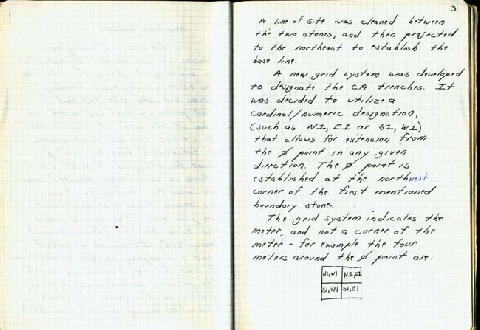 3
A line of site was cleared between
the two stones, and then projected
to the northeast to establish the
base line.
A new grid system was developed
to designate the EA trenches. It
was decided to utilize a
cardinal/numeric designation,
(such as N1, E1 or S1, W1)
that allows for extension from
the Ø point in any given
direction. The Ø point is
established at the northwest
corner of the first mentioned
boundary stone.
The grid system indicates the
meter, and not a corner of the
meter - for example the four
meters around the Ø point are:
N1,W1 N1,E1
S1,W1 S1,E1